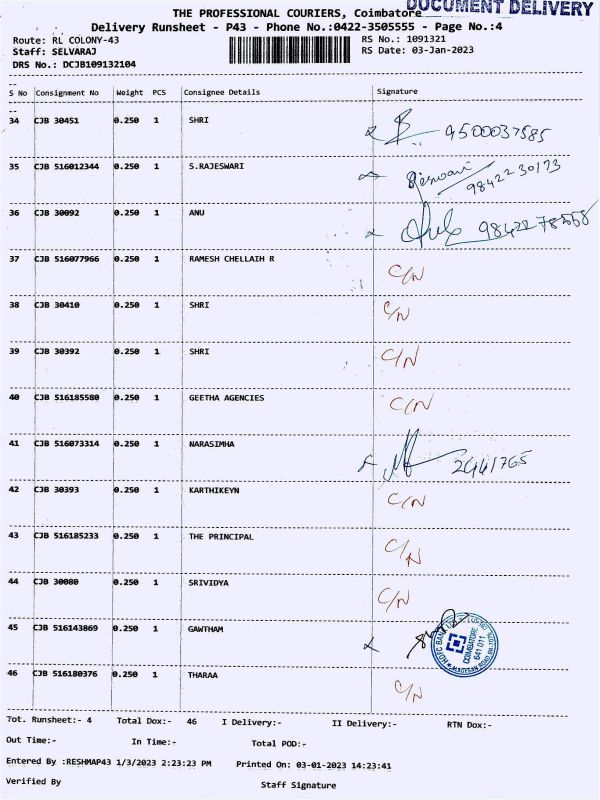 THE PROFESSIONAL COURIERS, Coimbatore
DOCUMENT DELIVERY
Delivery Runsheet - P43 - Phone No.:0422-3505555 - Page No.:4
Route: RL COLONY-43 RS No.: 1091321
Staff: SELVARAJ RS Date: 03-Jan-2023
DRS No.: DCJB109132104
S No Consignment No Weight PCS Consignee Details Signature
34 CJB 30451 0.250 1 SHRI 9500037585
35 CJB 516012344 0.250 1 S.RAJESWARI 98422 30173
36 CJB 30092 0.250 1 ANU
37 CJB 516077966 0.250 1 RAMESH CHELLAIH R C/N
38 CJB 30410 0.250 1 SHRI C/N
39 CJB 30392 0.250 1 SHRI C/N
40 CJB 516185580 0.250 1 GEETHA AGENCIES C/N
41 CJB 516073314 0.250 1 NARASIMHA 2441765
42 CJB 30393 0.250 1 KARTHIKEYN C/N
43 CJB 516185233 0.250 1 THE PRINCIPAL C/N
44 CJB 30080 0.250 1 SRIVIDYA C/N
45 CJB 516143869 0.250 1 GAWTHAM HDFC BANK COIMBATORE 641 011
46 CJB 516180376 0.250 1 THARAA C/N
Tot. Runsheet:- 4 Total Dox:- 46 I Delivery:- II Delivery:- RTN Dox:-
Out Time:- In Time:- Total POD:-
Entered By :RESHMAP43 1/3/2023 2:23:23 PM Printed On: 03-01-2023 14:23:41
Verified By Staff Signature